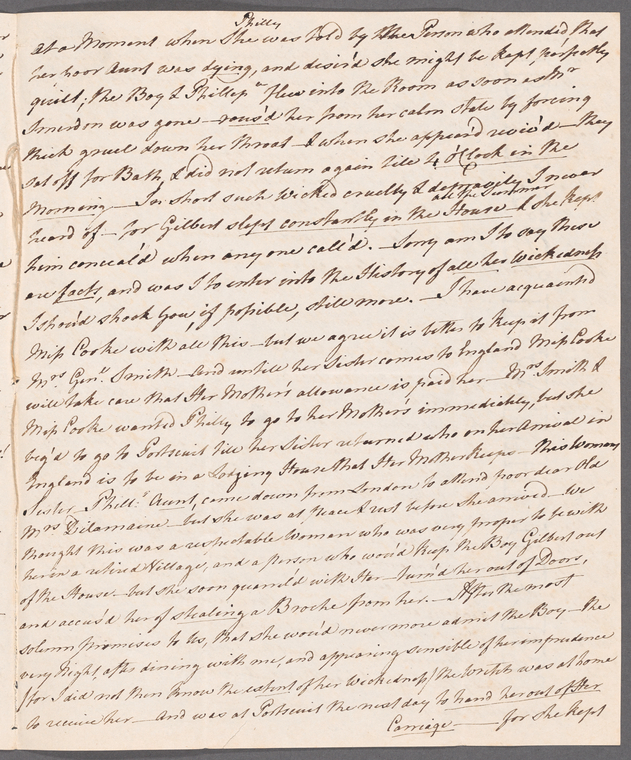 Philly
at a Moment when She was told by the Person who attended, that
her poor Aunt was dying, and desir'd she might be kept perfectly
quiet; the Boy & Phillep flew into the Room as soon as Mr
Smerdon was gone — rous'd her from her calm state by forcing
thick gruel down her throat — & when she appear'd reviv'd — they
set off for Bath, & did not return again till 4 o'Clock in the
Morning — In short such wicked cruelty & depravity I never
all the Summer
heard of — for Gilbert slept constantly in the House & she kept
him conceal'd when any one call'd. — Sorry am I to say these
are facts, and was I to enter into the History of all her Wickedness
I shou'd shock you, if possible, still more. — I have acquainted
Miss Cooke with all this — but we agree it is better to keep it from
Mrs Genl. Smith — And untill her Sister comes to England Miss Cooke
will take care that Her Mother's allowance is paid her — Mrs Smith &
Miss Cooke wanted Philly to go to her Mother's immediately, but she
beg'd to go to till her Sister returned who on her Arrival in
England is to be in a Lodging House that Her Mother keeps — This Woman
Sister — Phill:s Aunt, came down from London to attend poor dear Old
Mrs Delamaine — but she was at Peace & rest before she arrived — We
thought this was a respectable Woman who was very proper to be with
her in a retired Village, and a person who wou'd keep the Boy Gilbert out
of the House — but she soon quarrel'd with Her — turn'd her out of Doors,
and accus'd her of stealing a Broche from her. — After the most
solemn promises to Us, that she wou'd never more admit the Boy — the
very Night, after dining with me, and appearing sensible of her imprudence
(for I did not then know the extent of her Wickedness) the Wretch was at home
to receive her — And was at the next day to hand her out of Her
Carriage — for she kept